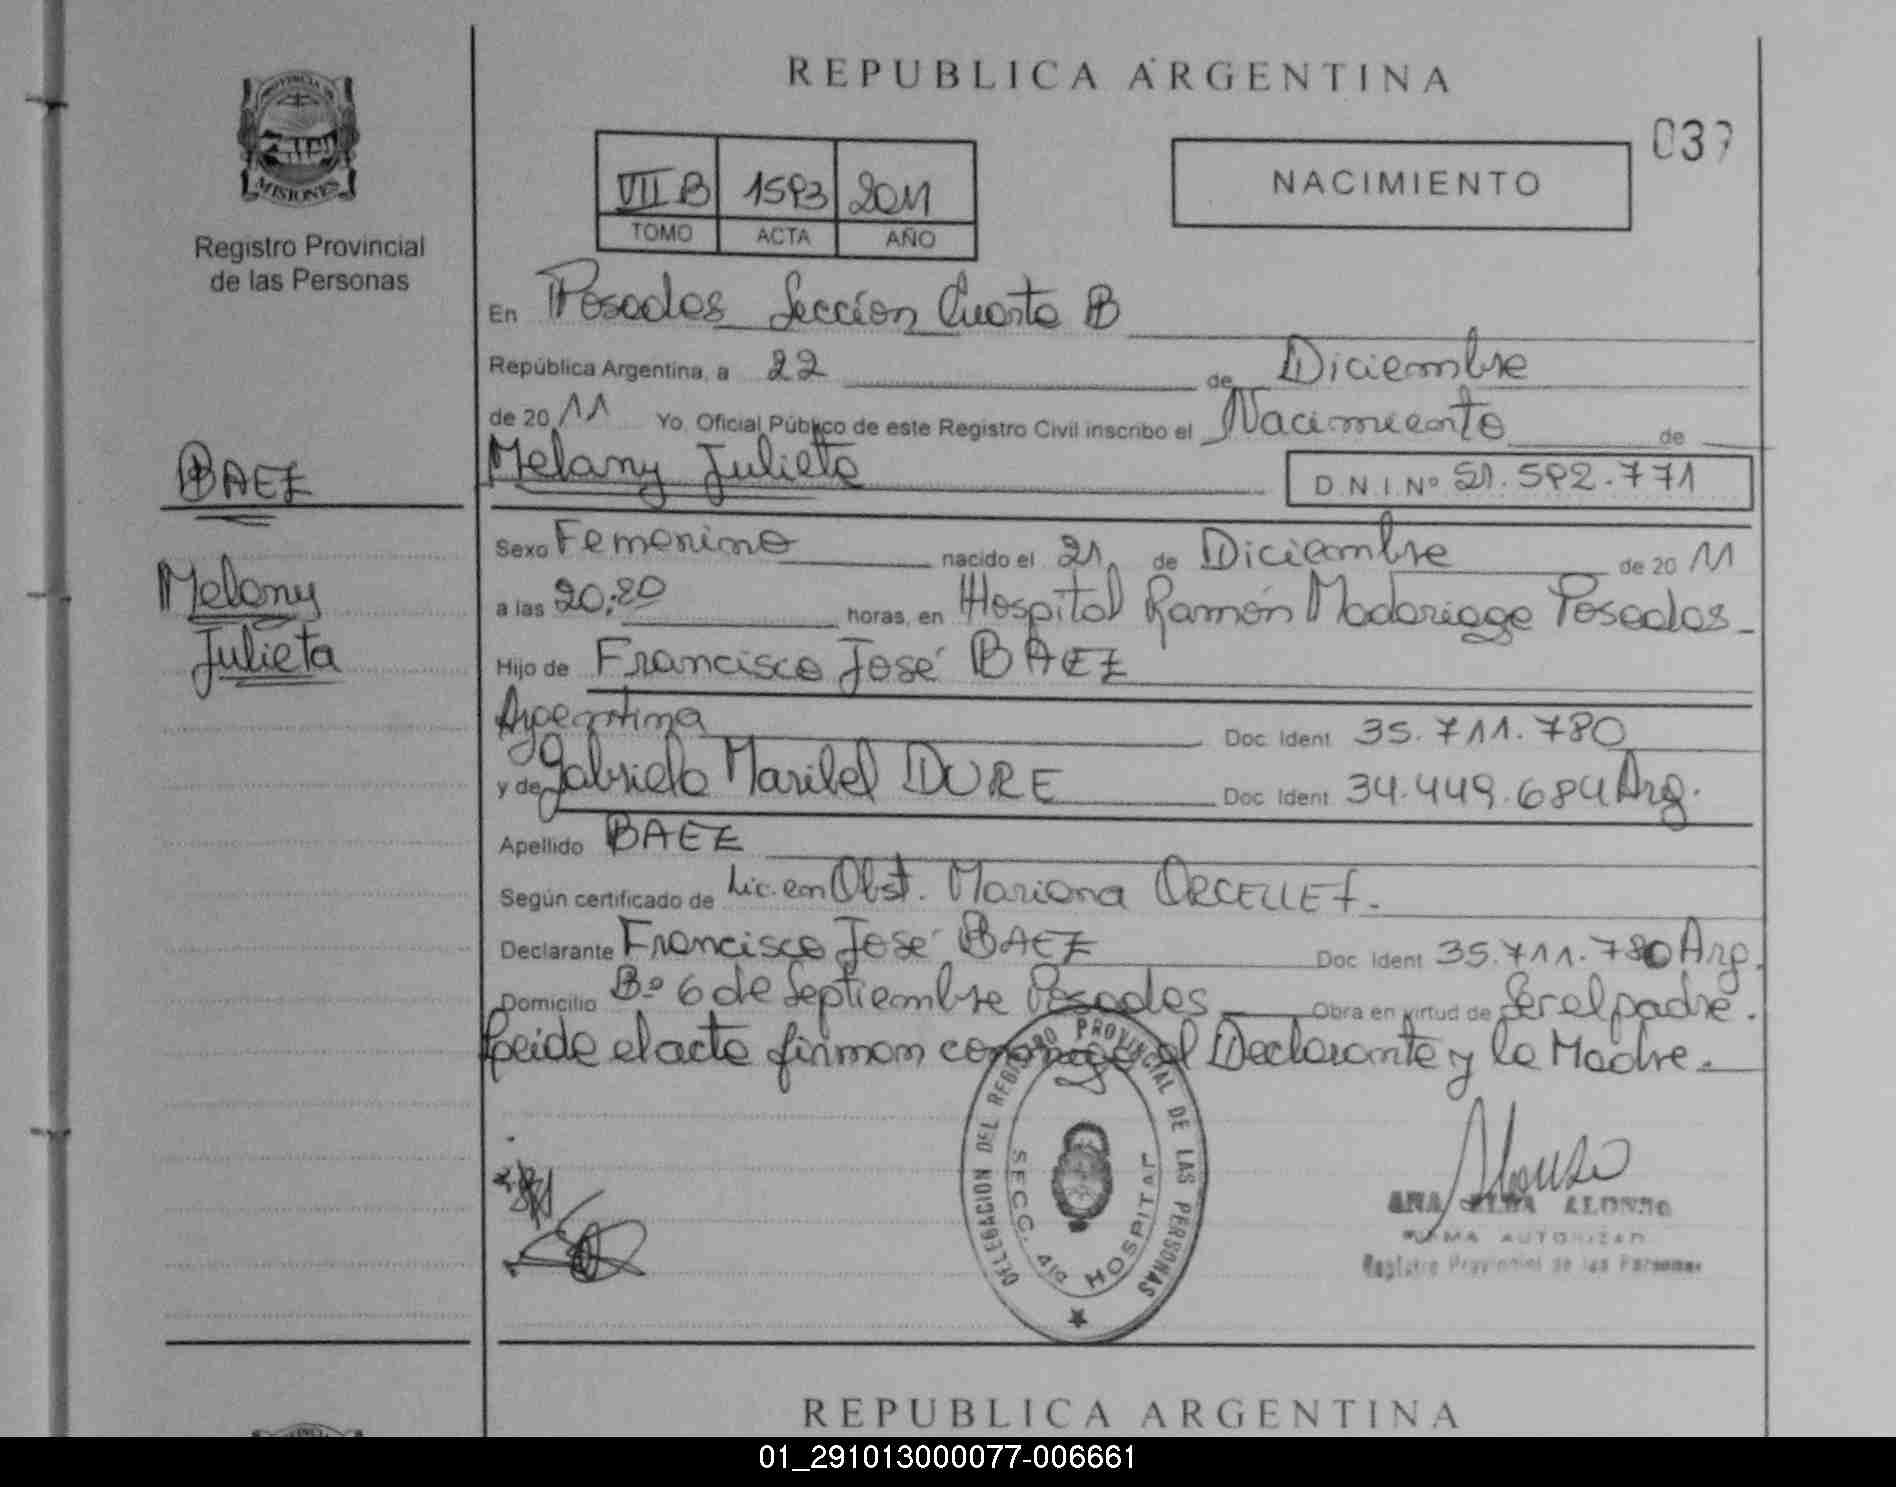 REPUBLICA ARGENTINA
037
PROVINCIA DE
MISIONES
Registro Provincial
de las Personas
VII B 1593 2011
TOMO ACTA AÑO
NACIMIENTO
En Posadas Sección Cuarta B
República Argentina, a 22 de Diciembre
de 20 11 Yo, Oficial Público de este Registro Civil inscribo el Nacimiento de
Melany Julieta D.N.I. Nº 51.592.771
BAEZ
Melany
Julieta
Sexo Femenino nacido el 21 de Diciembre de 20 11
a las 20:20 horas, en Hospital Ramón Madariaga Posadas
Hijo de Francisco José BAEZ
Argentina Doc. Ident. 35.711.780
y de Gabriela Maribel DURE Doc. Ident. 34.449.684 Arg.
Apellido BAEZ
Según certificado de Lic. en Obst. Mariana ORCELLET.
Declarante Francisco José BAEZ Doc. Ident. 35.711.780 Arg.
Domicilio Bº 6 de Septiembre Posadas Obra en virtud de Ser el padre.
Leída el acta firman conmigo el Declarante y la Madre.
DELEGACION DEL REGISTRO PROVINCIAL DE LAS PERSONAS
SECC. 4ta HOSPITAL
Alonso
ANA ALBA ALONSO
FIRMA AUTORIZAD
Registro Provincial de las Personas
REPUBLICA ARGENTINA
01_291013000077-006661